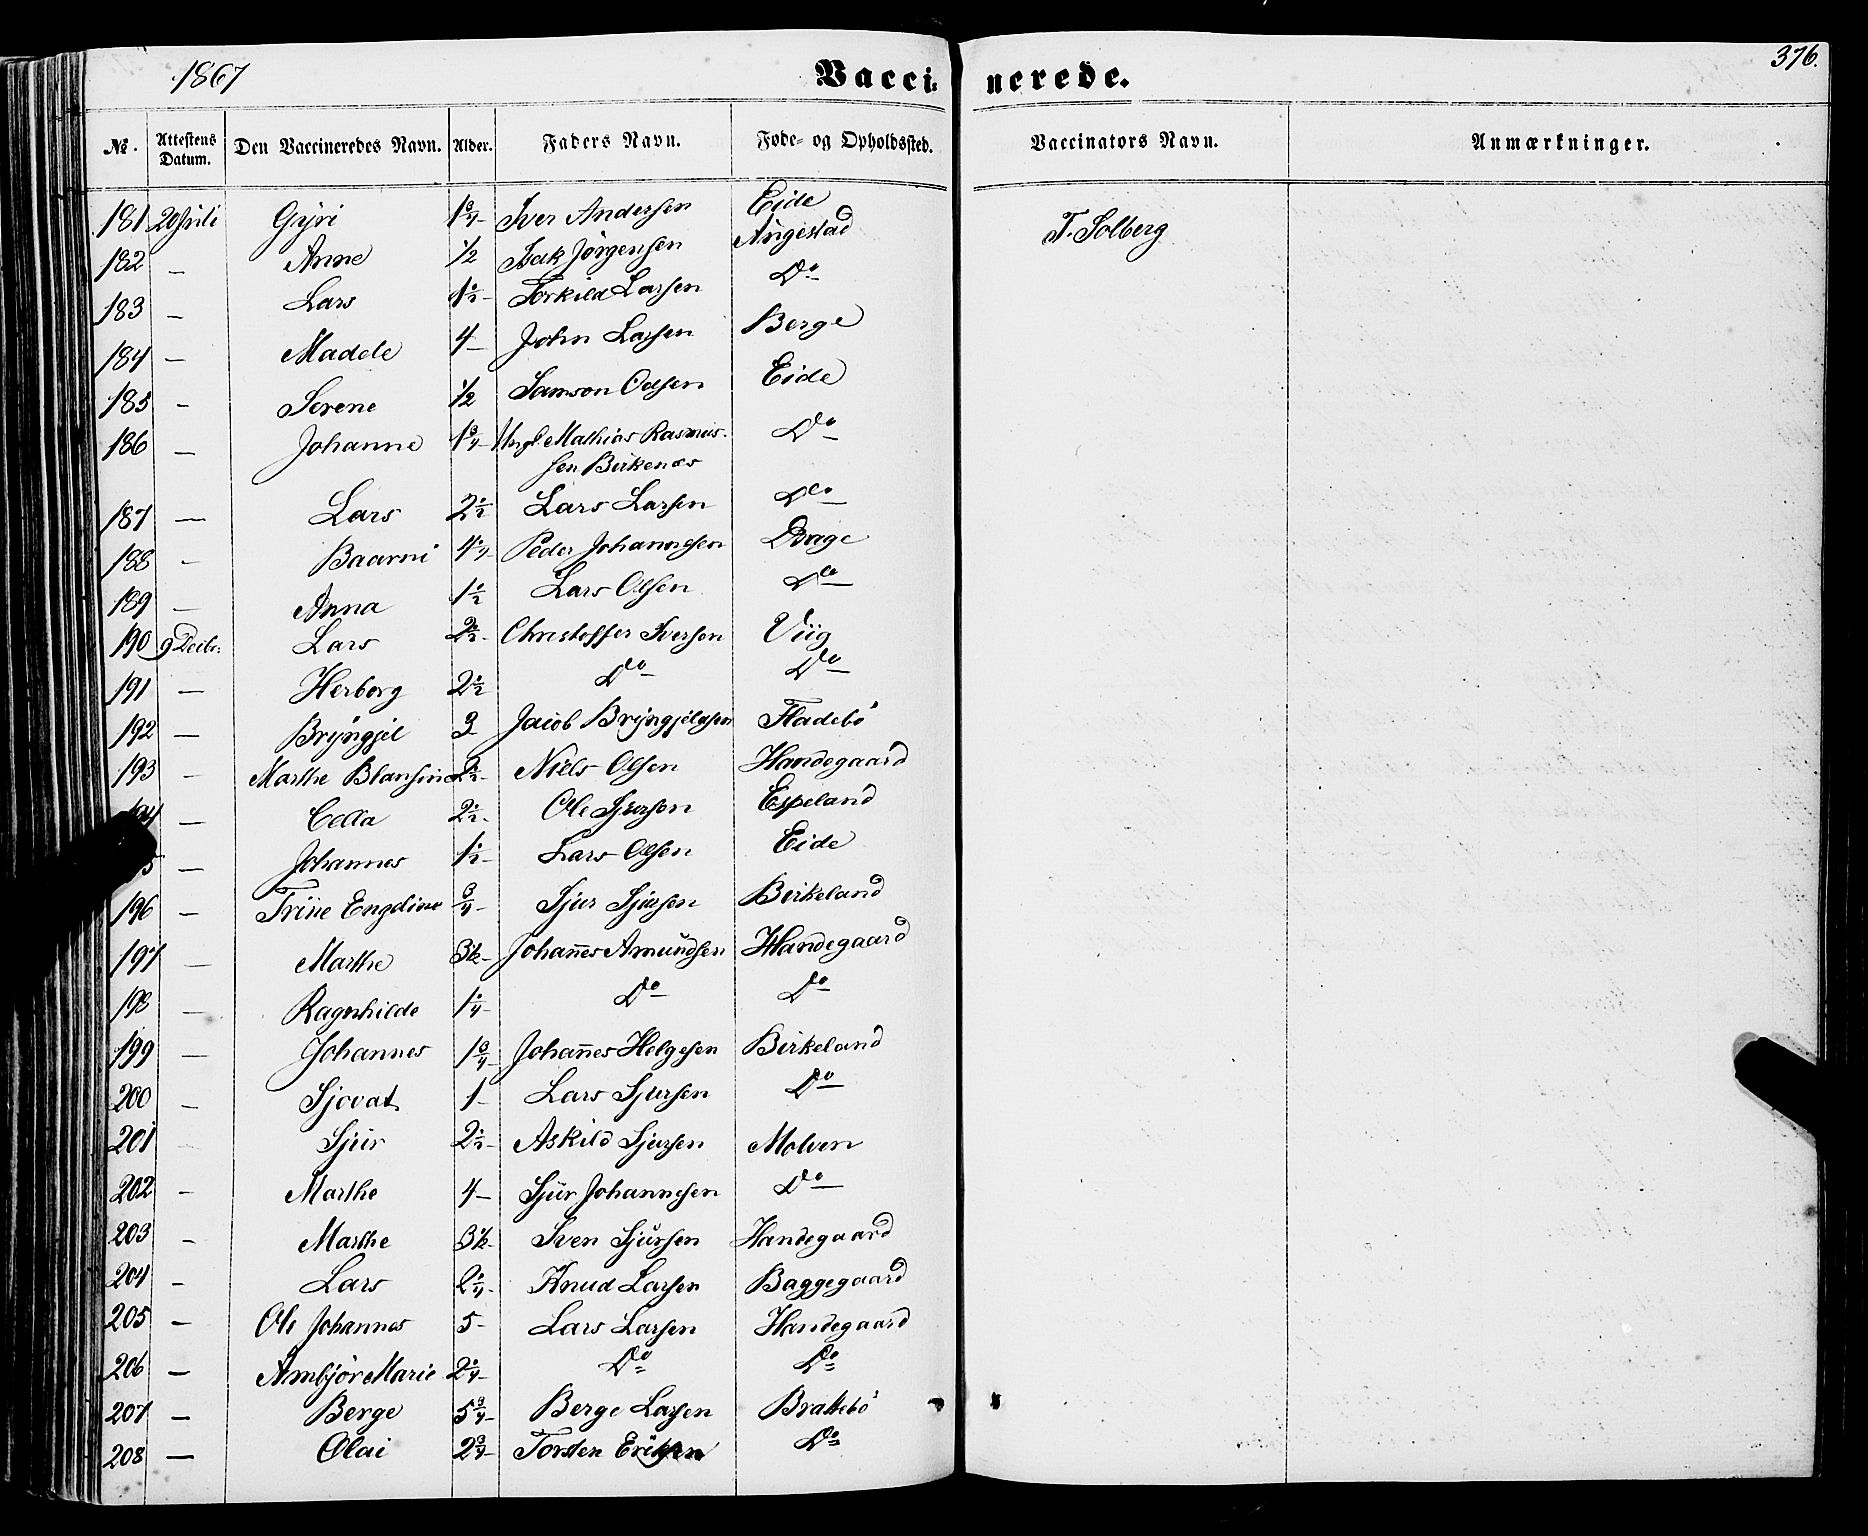 1867 Vaccinerede. 376.
No. Attestens Datum. Den Vaccineredes Navn. Alder. Faders Navn. Føde- og Opholdssted. Vaccinators Navn. Anmærkninger.
181 20 Juli Gÿri 1 3/4 Iver Andersen Eide T. Solberg
182 — Anne 1/2 Isak Jørgensen Augestad
183 — Lars 1 1/2 Torkild Larsen Do
184 — Madele 4 John Larsen Berge
185 — Serene 1/2 Samson Olsen Eide
186 — Johanne 1 3/4 Ungk Mathias Rasmus-
sen Birkenæs Do
187 — Lars 2 1/2 Lars Larsen Do
188 — Baarni 4 1/4 Peder Johannesen Drage
189 — Anna 1 1/2 Lars Olsen Do
190 9 Decbr: Lars 2 1/2 Christoffer Iversen Viig
191 — Herborg 2 1/2 Do Do
192 — Brÿngjel 3 Jacob Brÿngjelsen Fladebö
193 — Marthe 1/2 Niels Olsen Handegaard
194 — Cella 2 1/2 Ole Sjursen Espeland
5 — Johannes 1 1/2 Lars Olsen Eide
196 — Trine Engeline 3/4 Sjur Sjursen Birkeland
197 — Marthe 3 1/2 Johannes Amundsen Handegaard
198 — Ragnhilde 1 1/4 Do Do
199 — Johannes 1 3/4 Johannes Helgesen Birkeland
200 — Sjovat 1 Lars Sjursen Do
201 Sjur 2 1/2 Askild Sjursen Molven
202 — Marthe 4 Sjur Johannesen Do
203 — Marthe 3 1/2 Sven Sjursen Handegaard
204 — Lars 2 1/4 Knud Larsen Baggegaard
205 — Ole Johannes 5 Lars Larsen Handegaard
206 — Ambjör Marie 2 1/4 Do Do
207 — Berge 5 3/4 Berge Larsen Brattebö
208 — Olai 2 3/4 Torsten Eriksen Do